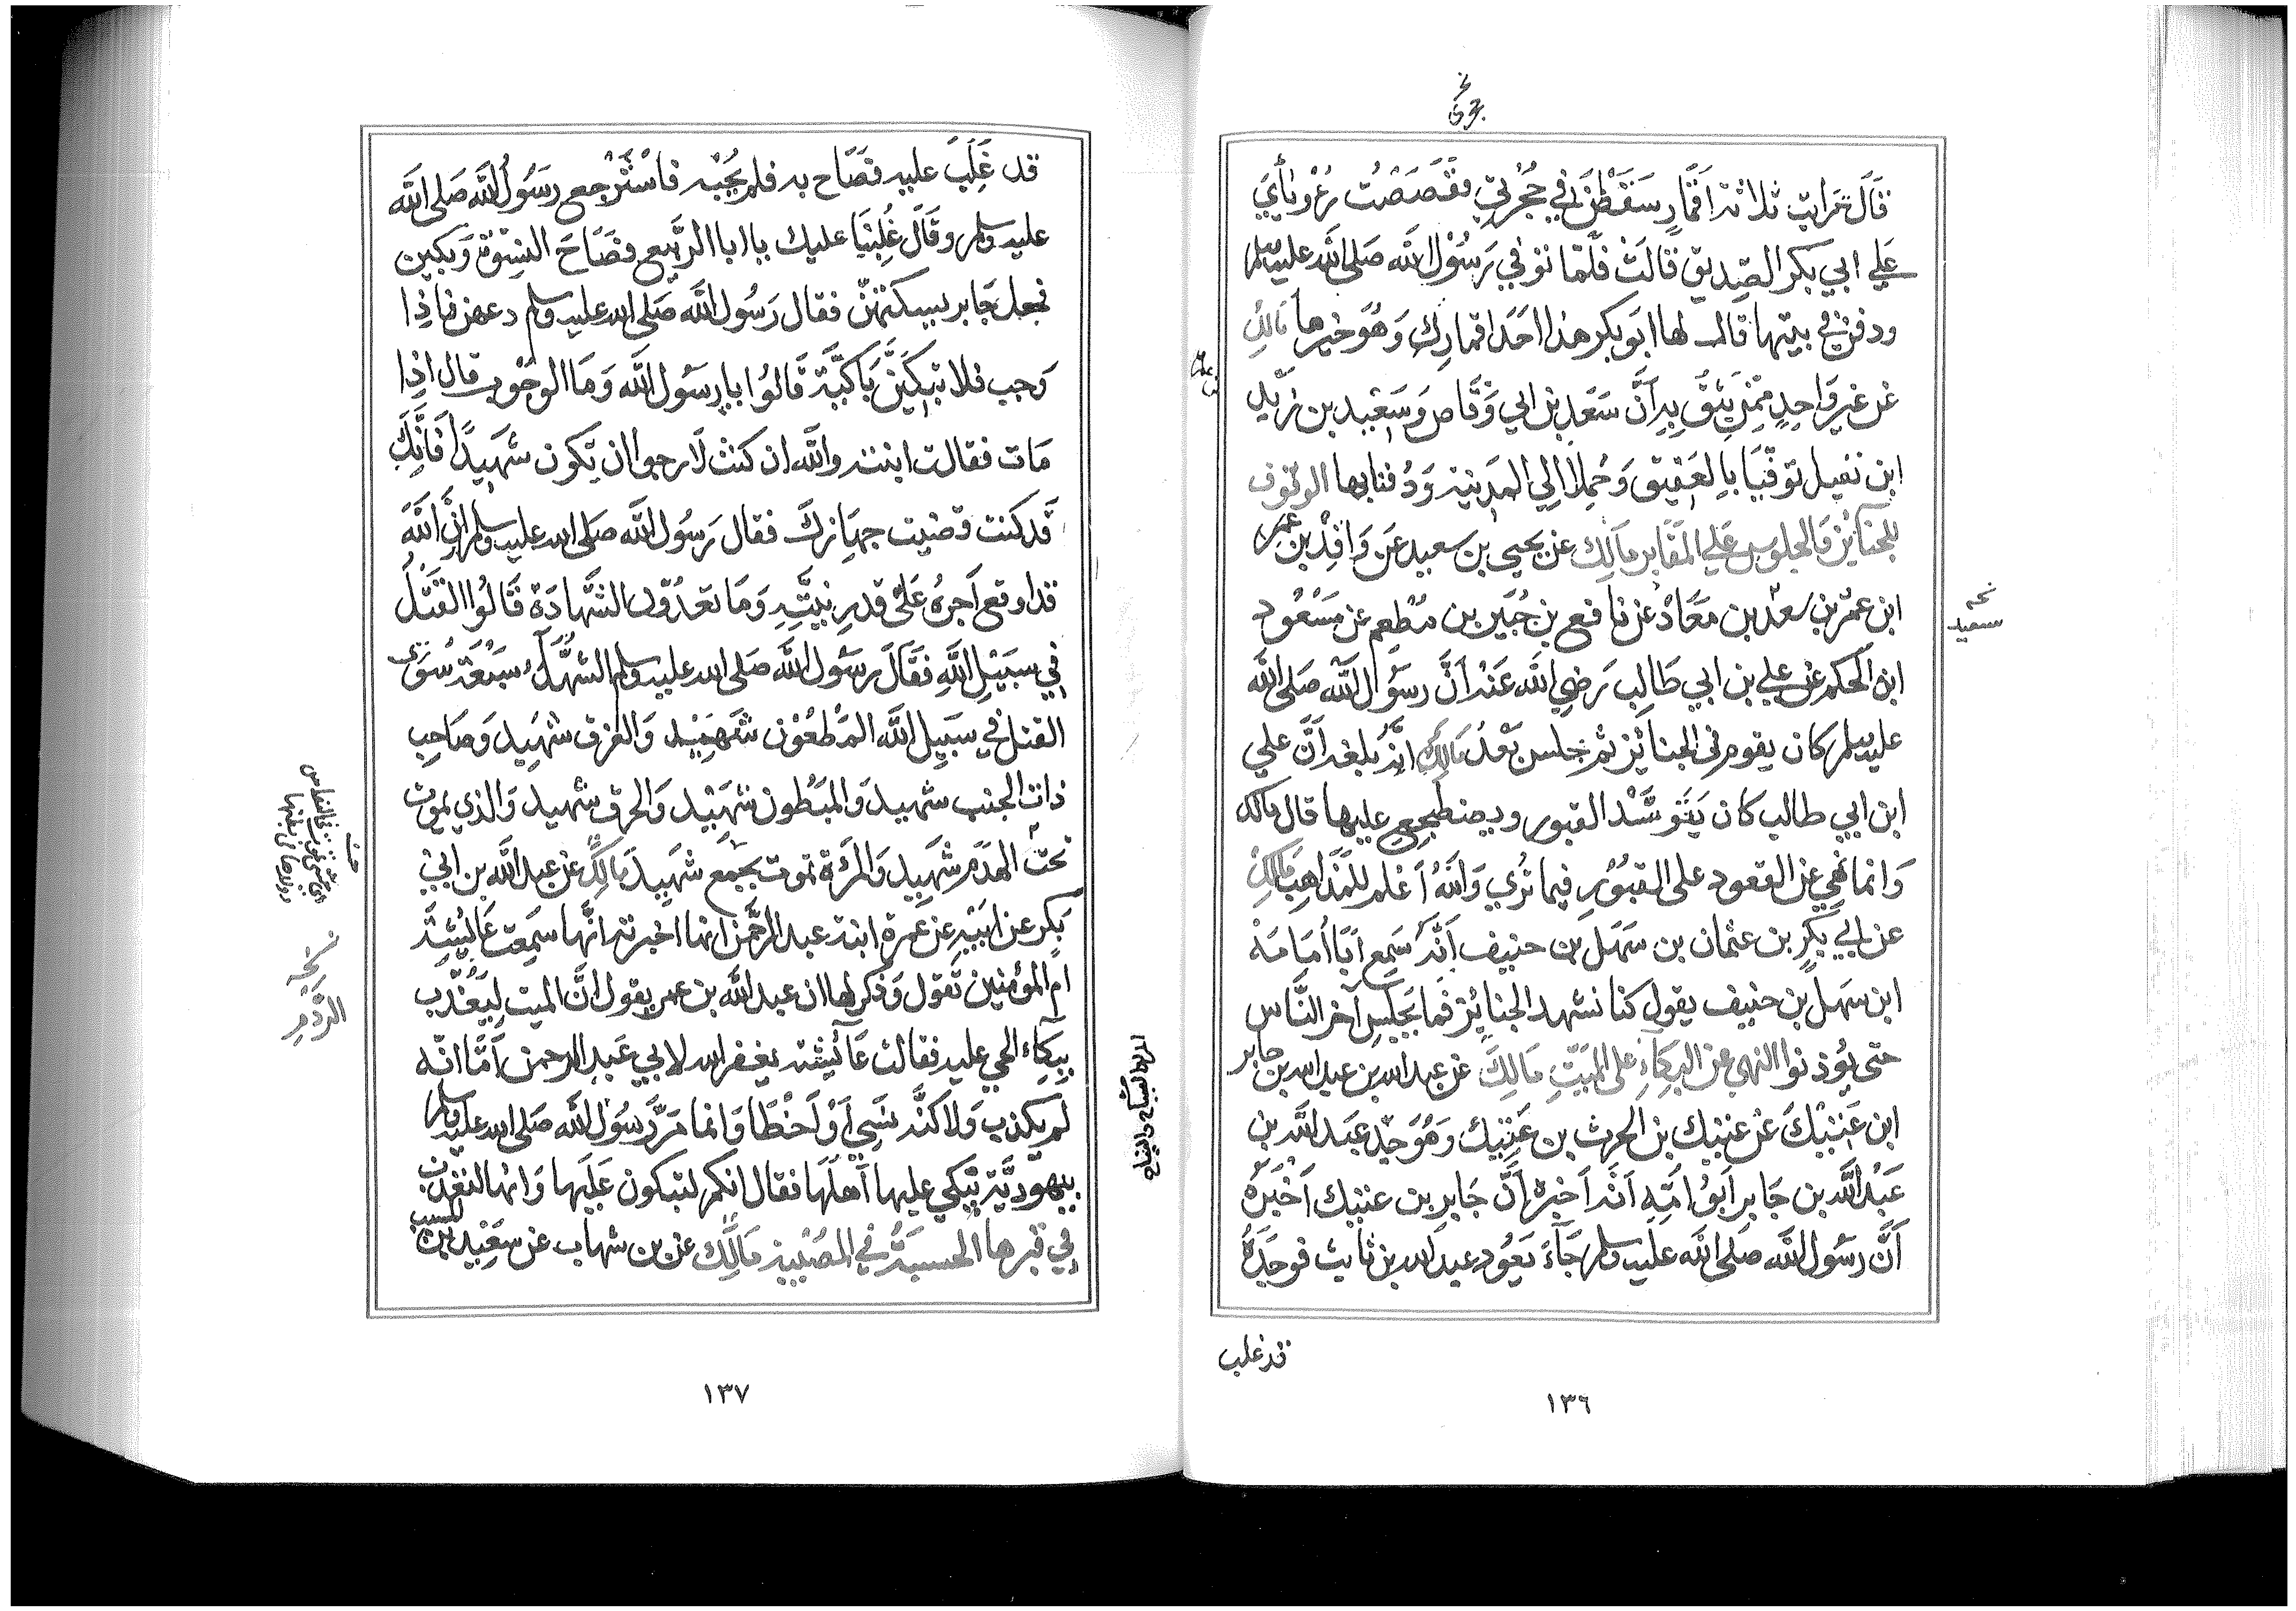 نخ
حجري
قَالَت رايت ثلاثة اقمارٍ سَقَطْنَ في حُجْرتي فقَصَصْتُ رُءْوياي
عَلي ابي بكر الصّديق قالَتْ فلمّا توفي رَسُوْل الله صَلى الله عليه وسلم
ودفن في بيتها قال لها ابَو بكر هذا احَد اقمارك وَهُوَ خيرها مالك
عن غير وَاحِدٍ ممّن يثق به اَنَّ سَعَد بن ابي وَقّاص وَسَعيد بن زيد
ابن نفيل توفّيَا بالعَقيق وَحُمِلا الي المَدينة وَدُفنا بها الوقوف
للجنائز وَالجلوس عَلي المقابر مَالِك عن يحيى بن سعيد عَن وَاقِدْ بن عمر
ابن عمرو بن سَعْد بن مَعَاذْ عن نافع بن جُبَير بن مُطعم عن مَسْعُود
نخه
سعيد
ابن الَحكم عن علي بن ابي طَالِب رَضي الله عَنْه اَنَّ رسُوْل الله صَلى الله
عليه وسلم كان يقوم في الجنائز ثم جلس بَعْدُ مَالِكْ انه بلغه اَنَّ علي
ابن ابي طالب كان يَتَوَسَّد القبور ويضطجع عليها قال مالك
وَانما نُهي عن القعود على القبُوْر فيما نُرَي وَاللهُ اَعْلم للمَذاهِب مَالك
عن ابي بَكرٍ بن عثمان بن سَهَل بن حنيف اَنَّه سَمِع اَبَا اُمَامَة
ابن سَهَل بن حنيف يقول كنا نشهد الجنائز فمَا يَجَلس آخر النَّاس
حتى يُوْذنوا النهي عن البُكاءِ على المَيّتِ مَالِكَ عن عبد الله بن عبد الله بن جابر
ابن عَتيْكَ عن عتيك بن الحرث بن عَتيك وَهُوَ جدّ عَبَد الله بن
عَبْد الله بن جَابر اَبُوْ امّه اَنّه اَخبره اَنَّ جَابر بن عتيك اَخْبَرَهُ
اَنَّ رسُول الله صَلى الله عليه وسلم جَآءَ يَعُوْد عبد الله بن ثابت فوجَدَهُ
قد غلب
١٣٦
قد غَلِبَ عليه فصَاح به فلم يجُبْه فاسْتَرْجع رسُوْل الله صَلى الله
عليه وسلم وقَالَ غُلِبْنَا عليك يا ابا الرّبيع فصَاحَ النسوَة وَبكين
فجعل جَابر يسكتهنّ فقال رَسُول الله صَلى الله عليه وسلم دعهن فاذا
وَجب فلا تبكينَّ بَاكيَّة قَالُوْا يا رسَوْل الله وَمَا الوجُوْب قال اذا
مَات فقالت ابنته والله ان كنت لَارجوا ان تكون شهَيداً فَانَّك
قَد كنت قضيت جهَازك فقال رَسُول الله صَلى الله عليه وسلم انَّ الله
قد اوقع اَجرهُ عَلَى قدرِ نيَّتهِ وَمَا تعدّون الشَّهَادَة قَالُوْا القَتْلُ
في سبَيْل الله فقَالَ رسُول الله صَلى الله عليه وسلم الشُهَدَآءُ سَبْعَة سُوَى
القتل في سَبيل الله المَطْعُوْن شهَيْد وَالغرق شهَيد وَصَاحِب
ذات الجنب شهيد وَالمبَطُون شهَيْد وَالحرق شهيد وَالذي يموت
تحتَ الهدَم شهَيد وَالمرَءَة تموت بجمع شهَيدَ مَالِكْ عن عبد الله بن ابي
نخه
الرَّدْم
بَكر عن ابَيْهِ عن عمرة ابنة عبد الرحمن انها اخبرته انَّها سَمعَت عَائشة
ام المؤمنين تَقول وَذكر لها ان عبد الله بن عمر يقول انَّ الميت ليَعُذّب
بِبكآء الحي عليه فقالت عَآئِشة يغفر الله لابي عَبد الرحمن اَمَّا انه
لم يكذب وَلَاكنَّه نسَيَ اَوْ اَخْطَا وَانما مَرَّ رَسُوْل الله صَلى الله عليه وسلم
بيهوديَّة يَبكي عليها اَهلهَا فقال انكم لتبكون عَليَها وَانها لتعَذب
في قبرها الحسبَةُ في المصُيبة مَالِكْ عن بن شهاب عن سَعَيد بن المسيب
١٣٧